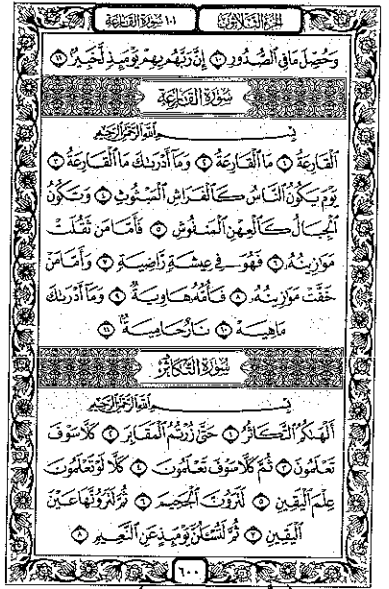 الجزء الثلاثون ١٠١ سورة القارعة
وَحُصِّلَ مَا فِي الصُّدُورِ ١٠ إِنَّ رَبَّهُم بِهِمْ يَوْمَئِذٍ لَّخَبِيرٌ ١١
سُورَةُ القَارِعَةِ
بِسْمِ اللَّهِ الرَّحْمَٰنِ الرَّحِيمِ
الْقَارِعَةُ ١ مَا الْقَارِعَةُ ٢ وَمَا أَدْرَىٰكَ مَا الْقَارِعَةُ ٣
يَوْمَ يَكُونُ النَّاسُ كَالْفَرَاشِ الْمَبْثُوثِ ٤ وَتَكُونُ
الْجِبَالُ كَالْعِهْنِ الْمَنفُوشِ ٥ فَأَمَّا مَن ثَقُلَتْ
مَوَازِينُهُ ٦ فَهُوَ فِي عِيشَةٍ رَّاضِيَةٍ ٧ وَأَمَّا مَنْ
خَفَّتْ مَوَازِينُهُ ٨ فَأُمُّهُ هَاوِيَةٌ ٩ وَمَا أَدْرَىٰكَ
مَا هِيَهْ ١٠ نَارٌ حَامِيَةٌ ١١
سُورَةُ التَّكَاثُرِ
بِسْمِ اللَّهِ الرَّحْمَٰنِ الرَّحِيمِ
أَلْهَىٰكُمُ التَّكَاثُرُ ١ حَتَّىٰ زُرْتُمُ الْمَقَابِرَ ٢ كَلَّا سَوْفَ
تَعْلَمُونَ ٣ ثُمَّ كَلَّا سَوْفَ تَعْلَمُونَ ٤ كَلَّا لَوْ تَعْلَمُونَ
عِلْمَ الْيَقِينِ ٥ لَتَرَوُنَّ الْجَحِيمَ ٦ ثُمَّ لَتَرَوُنَّهَا عَيْنَ
الْيَقِينِ ٧ ثُمَّ لَتُسْأَلُنَّ يَوْمَئِذٍ عَنِ النَّعِيمِ ٨
٦٠٠